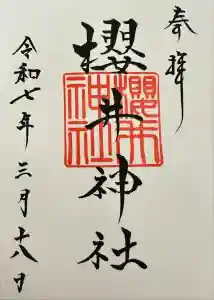 奉拝
櫻井神社
櫻井神社
令和七年三月十八日